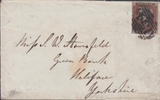 Miss S. W. Stansfeld
Green Bank
Halifax
Yorkshire